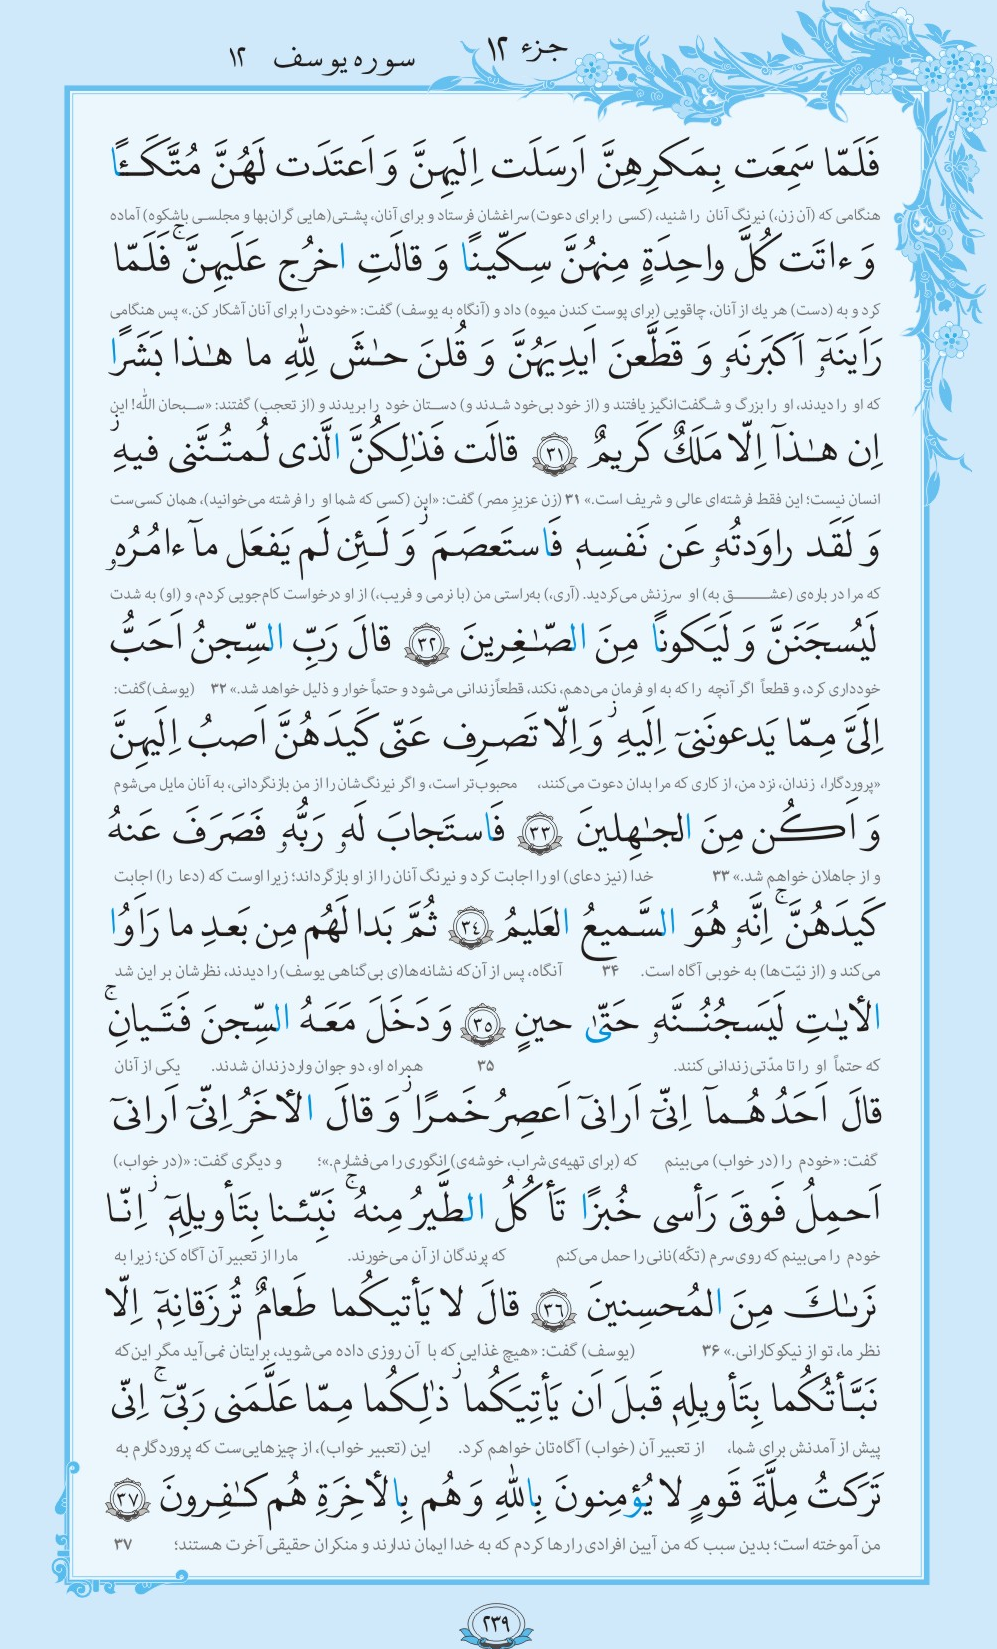 جزء ١٢
سوره یوسف ١٢
فَلَمّا سَمِعَت بِمَكرِهِنَّ اَرسَلَت اِلَيهِنَّ وَ اَعتَدَت لَهُنَّ مُتَّكَـًٔا
هنگامی که (آن زن،) نیرنگ آنان را شنید، (کسی را برای دعوت) سراغشان فرستاد و برای آنان، پشتی(هایی گران‌بها و مجلسی باشکوه) آماده
وَ ءاتَت كُلَّ واحِدَةٍ مِنهُنَّ سِكّينًا وَ قالَتِ اخرُج عَلَيهِنَّ ۚ فَلَمّا
کرد و به (دست) هر یك از آنان، چاقویی (برای پوست کندن میوه) داد و (آنگاه به یوسف) گفت: «خودت را برای آنان آشکار کن.» پس هنگامی
رَاَينَهُۥٓ اَكبَرنَهُۥ وَ قَطَّعنَ اَيدِيَهُنَّ وَ قُلنَ حـٰشَ لِلّٰهِ ما هـٰذا بَشَرًا
که او را دیدند، او را بزرگ و شگفت‌انگیز یافتند و (از خود بی‌خود شدند و) دستان خود را بریدند و (از تعجب) گفتند: «سبحان الله! این
اِن هـٰذآ اِلّا مَلَكٌ كَريمٌ ﴿٣١﴾ قالَت فَذٰلِكُنَّ الَّذى لُمتُنَّنى فيهِ ۖ
انسان نیست؛ این فقط فرشته‌ای عالی و شریف است.» ۳۱ (زن عزیزِ مصر) گفت: «این (کسی که شما او را فرشته می‌خوانید)، همان کسی‌ست
وَ لَقَد راوَدتُهُۥ عَن نَفسِهٖ فَاستَعصَمَ ۖ وَ لَـئِن لَم يَفعَل مآ ءامُرُهُۥ
که مرا در باره‌ی (عشـق به) او سرزنش می‌کردید. (آری،) به‌راستی من (با نرمی و فریب،) از او درخواست کام‌جویی کردم، و (او) به شدت
لَيُسجَنَنَّ وَ لَيَكونًا مِنَ الصّـٰغِرينَ ﴿٣٢﴾ قالَ رَبِّ السِّجنُ اَحَبُّ
خودداری کرد، و قطعاً اگر آنچه را که به او فرمان می‌دهم، نکند، قطعاً زندانی می‌شود و حتماً خوار و ذلیل خواهد شد.» ۳۲ (یوسف) گفت:
اِلَىَّ مِمّا يَدعونَنىٓ اِلَيهِ ۖ وَ اِلّا تَصرِف عَنّى كَيدَهُنَّ اَصبُ اِلَيهِنَّ
«پروردگارا، زندان، نزد من، از کاری که مرا بدان دعوت می‌کنند، محبوب‌تر است، و اگر نیرنگ‌شان را از من بازنگردانی، به آنان مایل می‌شوم
وَ اَكُن مِنَ الجـٰهِلينَ ﴿٣٣﴾ فَاستَجابَ لَهُۥ رَبُّهُۥ فَصَرَفَ عَنهُ
و از جاهلان خواهم شد.» ۳۳ خدا (نیز دعای) او را اجابت کرد و نیرنگ آنان را از او بازگرداند؛ زیرا اوست که (دعا را) اجابت
كَيدَهُنَّ ۚ اِنَّهُۥ هُوَ السَّميعُ العَليمُ ﴿٣٤﴾ ثُمَّ بَدا لَهُم مِن بَعدِ ما رَاَوُا
می‌کند و (از نیّت‌ها) به خوبی آگاه است. ۳۴ آنگاه، پس از آن‌که نشانه‌ها(ی بی‌گناهی یوسف) را دیدند، نظرشان بر این شد
الأيـٰتِ لَيَسجُنُـنَّهُۥ حَتّىٰ حينٍ ﴿٣٥﴾ وَ دَخَلَ مَعَـهُ السِّجنَ فَتَـيانِ ۖ
که حتماً او را تا مدّتی زندانی کنند. ۳۵ همراه او، دو جوان وارد زندان شدند. یکی از آنان
قالَ اَحَدُهُـمآ اِنّىٓ اَرانىٓ اَعصِرُ خَمرًا ۖ وَ قالَ الأخَرُ اِنّىٓ اَرانىٓ
گفت: «خودم را (در خواب) می‌بینم که (برای تهیه‌ی شراب، خوشه‌ی) انگوری را می‌فشارم.»؛ و دیگری گفت: «(در خواب،)
اَحمِلُ فَوقَ رَأسى خُبزًا تَأكُلُ الطَّيرُ مِنهُ ۖ نَبِّئـنا بِتَأويلِهٖٓ ۖ اِنّـا
خودم را می‌بینم که روی سرم (تکّه)نانی را حمل می‌کنم که پرندگان از آن می‌خورند. ما را از تعبیر آن آگاه کن؛ زیرا به
نَرىٰكَ مِنَ المُحسِنينَ ﴿٣٦﴾ قالَ لا يَأتيكُما طَعامٌ تُرزَقانِهٖٓ اِلّا
نظر ما، تو از نیکوکارانی.» ۳۶ (یوسف) گفت: «هیچ غذایی که با آن روزی داده می‌شوید، برایتان نمی‌آید مگر این‌که
نَبَّأتُكُما بِتَأويلِهٖ قَبلَ اَن يَأتِيَكُما ۚ ذٰلِكُما مِمّا عَلَّمَنى رَبّىٓ ۚ اِنّى
پیش از آمدنش برای شما، از تعبیر آن (خواب) آگاه‌تان خواهم کرد. این (تعبیر خواب)، از چیزهایی‌ست که پروردگارم به
تَرَكتُ مِلَّةَ قَومٍ لا يُؤمِنونَ بِاللّٰهِ وَ هُم بِالأخِرَةِ هُم كـٰفِرونَ ﴿٣٧﴾
من آموخته است؛ بدین سبب که من آیین افرادی را رها کردم که به خدا ایمان ندارند و منکران حقیقی آخرت هستند؛ ۳۷
٢٣٩